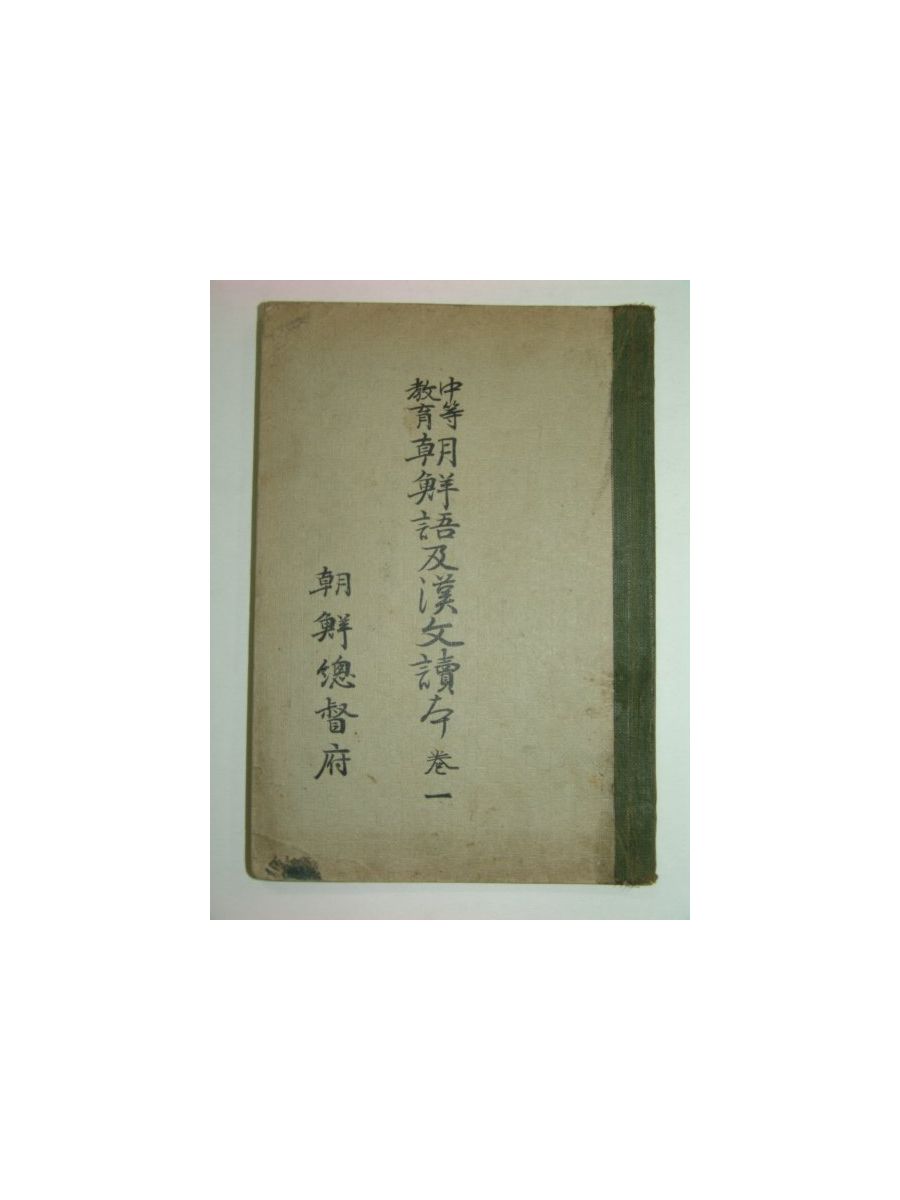 中等
教育
朝鮮語及漢文讀本 卷一
朝鮮總督府